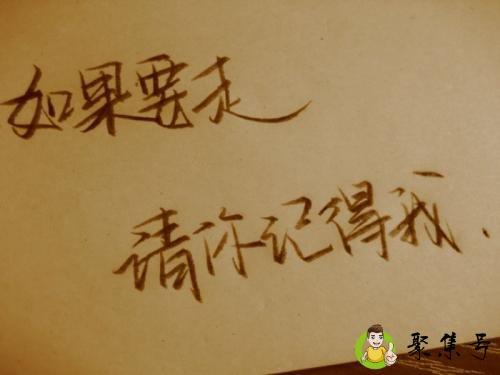 如果要走
请你记得我.
聚集号